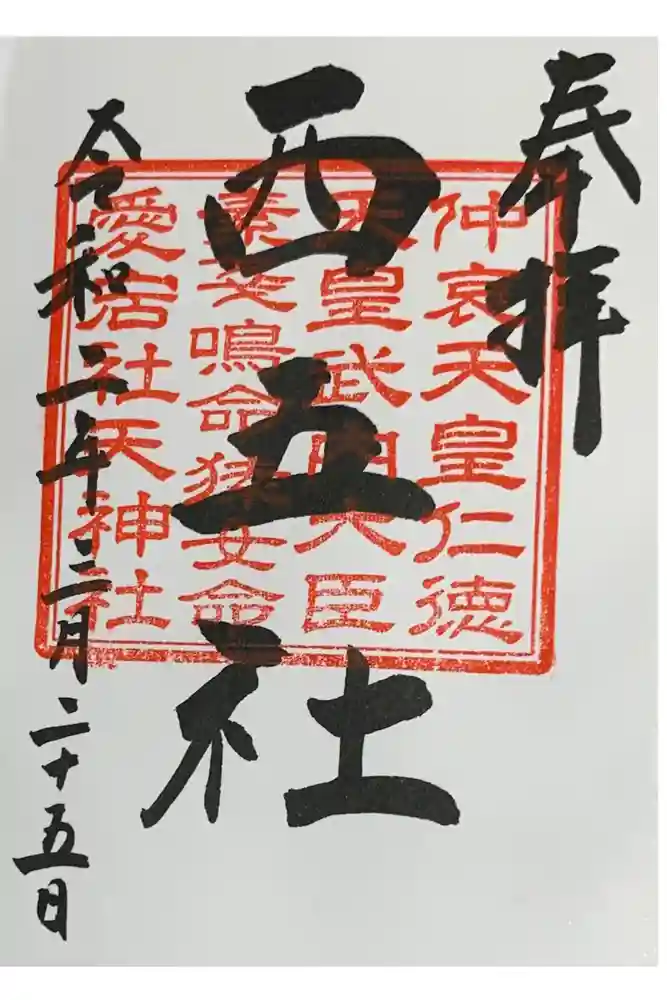 奉拝
西五社
令和二年三月二十五日
仲哀天皇仁徳
天皇武内大臣
素戔鳴命 女命
愛宕社天神社